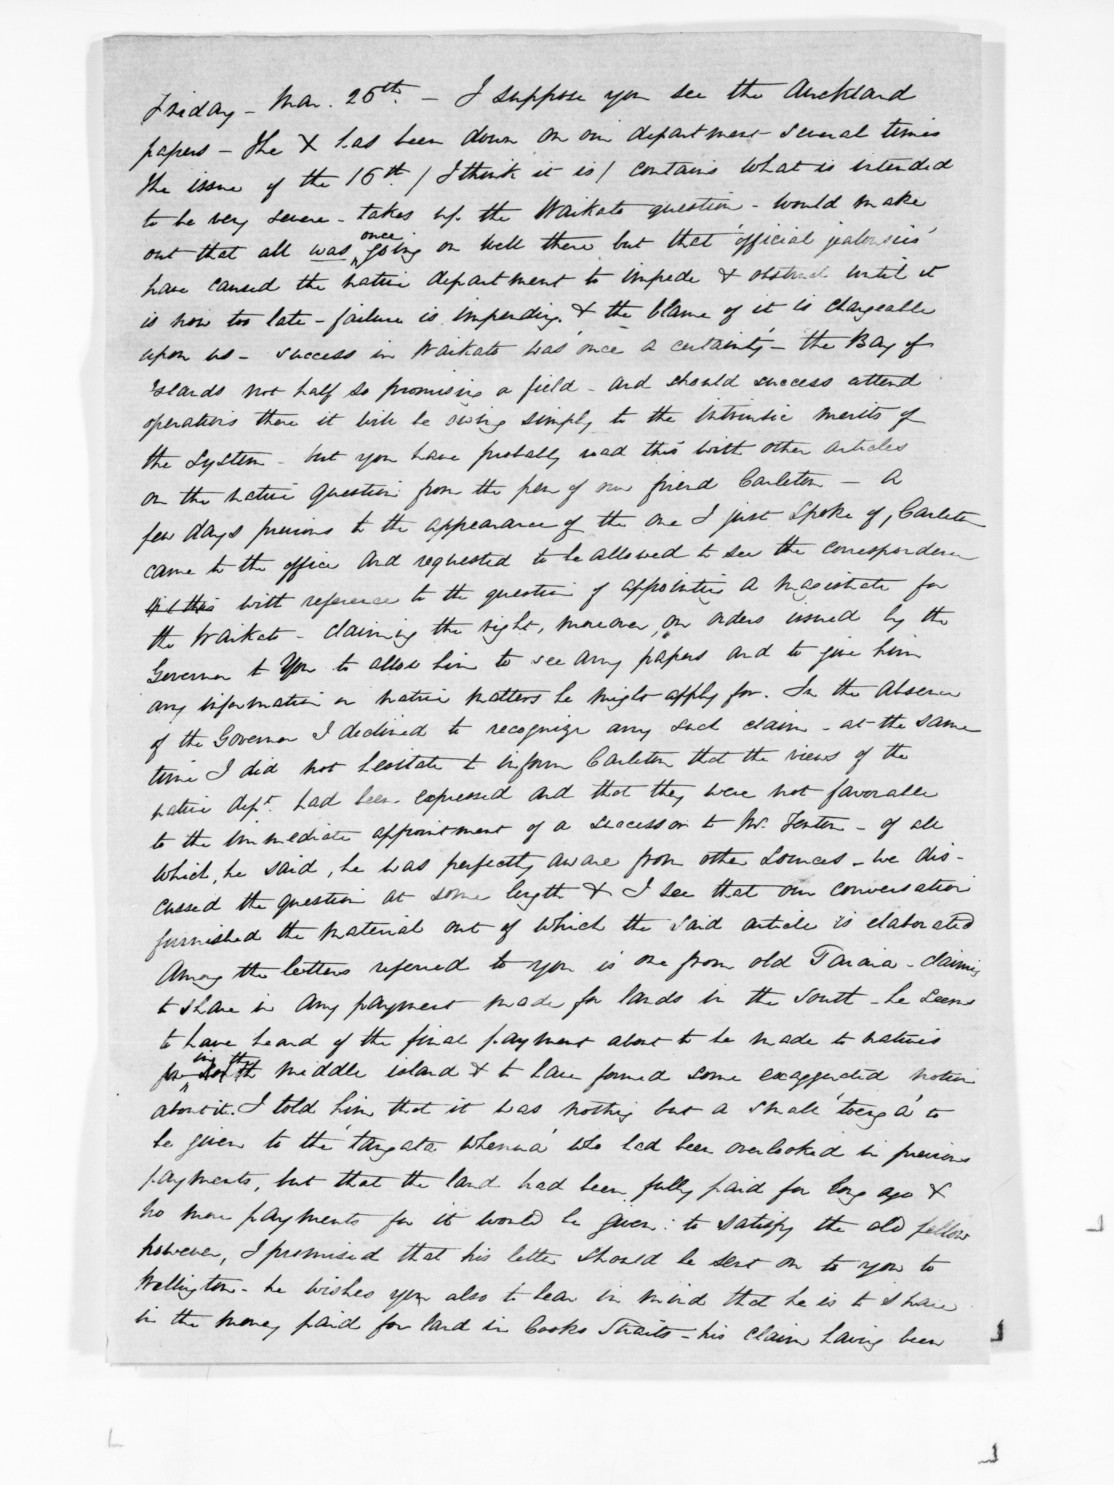 Friday - Mar. 25th. - I suppose you see the Auckland
papers - The X has been down on our department several times
The issue of the 15th. / I think it is / contains what is intended
to be very severe - takes up the Waikato question - would make
out that all was once going on well there but that 'official jealousies'
have caused the native department to impede & obstruct until it
is now too late - failure is impending & the blame of it is chargeable
upon us - success in Waikato was 'once a certainty' - the Bay of
Islands not half so promising a field - and should success attend
operations there it will be owing simply to the intrinsic merits of
the System - but you have probably read this with other articles
on the native question from the pen of our friend Carleton - A
few days previous to the appearance of the one I just spoke of, Carleton
came to the office and requested to be allowed to see the correspondence
with reference to the question of appointing a Magistrate for
the Waikato - claiming the right, moreover, on orders issued by the
Governor to you to allow him to see any papers and to give him
any information on native matters he might apply for. In the absence
of the Governor I declined to recognize any such claim - at the same
time I did not hesitate to inform Carleton that the views of the
native dept. had been expressed and that they were not favorable
to the immediate appointment of a successor to Mr. Fenton - of all
which, he said, he was perfectly aware from other sources - we dis-
cussed the question at some length & I see that our conversation
furnished the material out of which the said article is elaborated
Among the letters referred to you is one from old Taraia - claiming
to share in any payment made for lands in the South - he seems
to have heard of the final payment about to be made to natives
in the middle island & to have formed some exaggerated notion
about it. I told him that it was nothing but a small 'toenga' to
be given to the 'tangata whenua' who had been overlooked in previous
payments, but that the land had been fully paid for long ago &
no more payments for it would be given: to satisfy the old fellow
however, I promised that his letter should be sent on to you to
Wellington - he wishes you also to bear in mind that he is to share
in the money paid for land in Cooks Straits - his claim having been